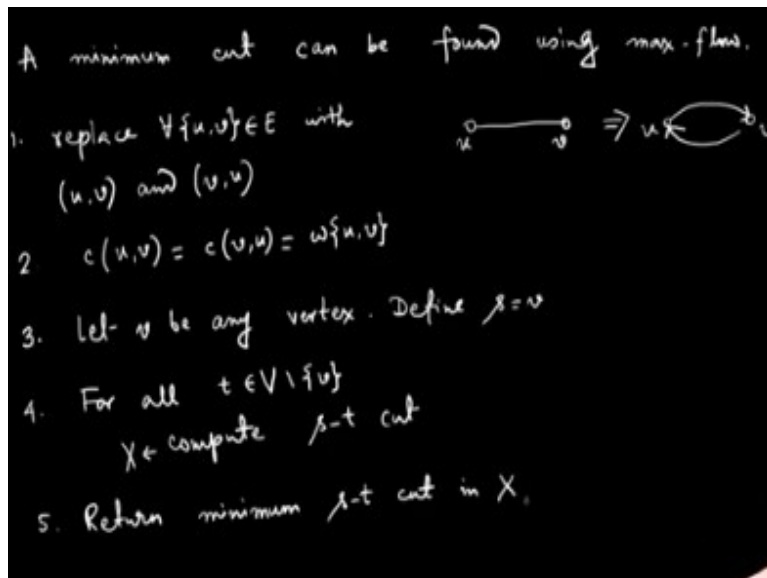 A minimum cut can be found using max-flow.
1. replace ∀{u,v}∈E with
u v ⇒ u v
(u,v) and (v,u)
2. c(u,v) = c(v,u) = w{u,v}
3. Let v be any vertex. Define s=v
4. For all t∈V\{v}
X← compute s-t cut
5. Return minimum s-t cut in X.